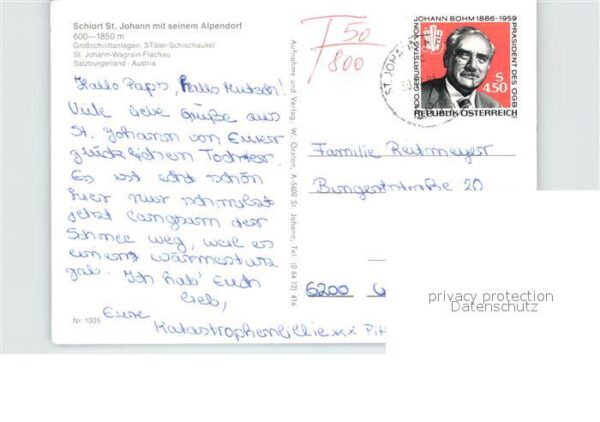 Schiort St. Johann mit seinem Alpendorf
800—1850 m
Großschiftanlagen, 3-Täler-Schischaukel
St. Johann-Wagrain-Flachau
Salzburgerland - Austria
Hallo Paps, hallo Mutsch!
Viele liebe Grüße aus
St. Johann von Eurer
glücklichen Tochter.
Es ist echt schön
hier nur schmilzt
jetzt langsam der
Schnee weg, weil es
einen wärmesturz
gab. Ich hab' Euch
lieb,
Eure
Katastrophenlillie xx
Nr. 1305
Aufnahme und Verlag: W. A-5600 St. Johann, Tel. (0 64 12) 416
T 50
800
100. GEBURTSTAG VON JOHANN BÖHM 1886-1959
PRÄSIDENT DES ÖGB
S
4.50
REPUBLIK ÖSTERREICH
ST. JOHANN
Familie Reitmeyer
20
6200
privacy protection
Datenschutz